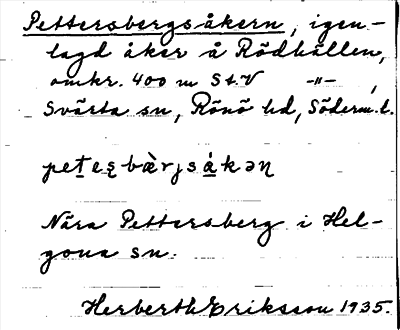 Pettersbergsåkern, igen-
lagd åker å Rödhällen,
omkr. 400 m St.V -"- ,
Svärta sn, Rönö hd, Söderm.l.
Nära Pettersberg i Hel-
gona sn.
Herberth Eriksson 1935.